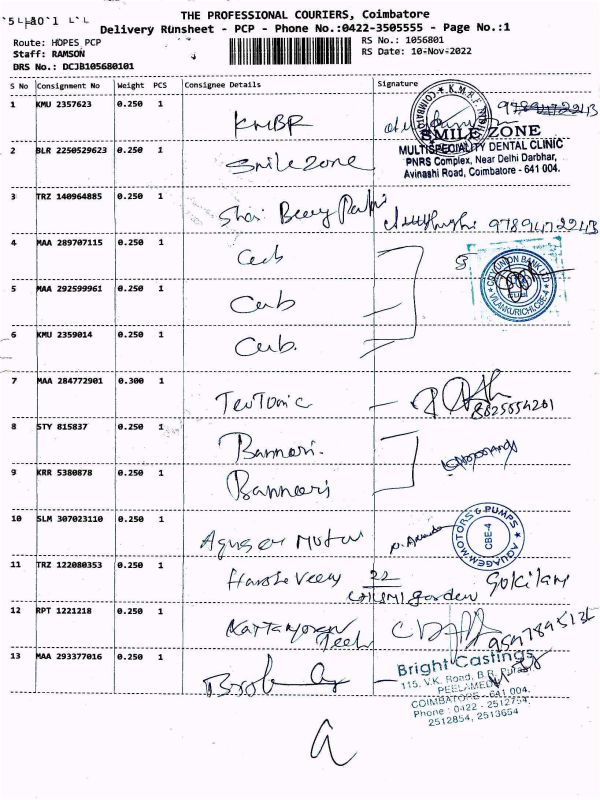 THE PROFESSIONAL COURIERS, Coimbatore
Delivery Runsheet - PCP - Phone No.:0422-3505555 - Page No.:1
Route: HOPES PCP
RS No.: 1056801
Staff: RAMSON
RS Date: 10-Nov-2022
DRS No.: DCJB105680101
S No Consignment No Weight PCS Consignee Details Signature
1 KMU 2357623 0.250 1 KMBR
SMILE ZONE
MULTISPECIALITY DENTAL CLINIC
PNRS Complex, Near Delhi Darbhar,
Avinashi Road, Coimbatore - 641 004.
2 BLR 2250529623 0.250 1 Smile Zone
3 TRZ 140964885 0.250 1 9789472243
4 MAA 289707115 0.250 1 Cub
CITY UNION BANK LTD
VILANKURICHI, CBE-4
5 MAA 292599961 0.250 1 Cub
6 KMU 2359014 0.250 1 Cub.
7 MAA 284772901 0.300 1 Teutonic
8 STY 815837 0.250 1 Bannari.
9 KRR 5380878 0.250 1 Bannari
10 SLM 307023110 0.250 1 Motor
AQUAGEM MOTORS & PUMPS
CBE-4
11 TRZ 122080353 0.250 1 22 garden Gokilam
12 RPT 1221218 0.250 1 Tech
13 MAA 293377016 0.250 1
Bright Castings
115, V.K. Road, B.R. Puram
PEELAMEDU
COIMBATORE - 641 004.
Phone : 0422 - 2512754,
2512854, 2513654